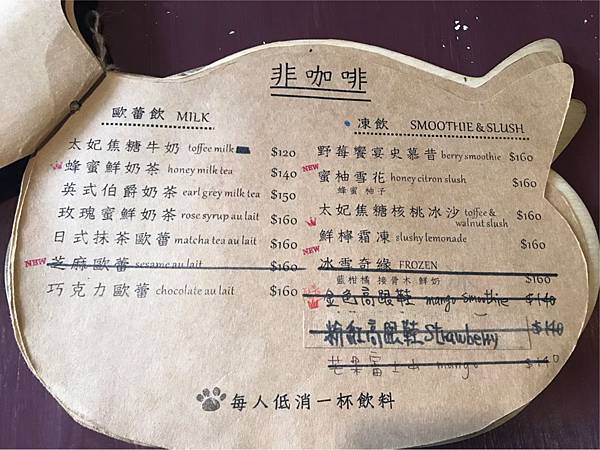 非咖啡
歐蕾飲 MILK
太妃焦糖牛奶 toffee milk $120
蜂蜜鮮奶茶 honey milk tea $140
英式伯爵奶茶 earl grey milk tea $150
玫瑰蜜鮮奶茶 rose syrup au lait $160
日式抹茶歐蕾 matcha tea au lait $160
NEW 芝麻歐蕾 sesame au lait $160
巧克力歐蕾 chocolate au lait $160
凍飲 SMOOTHIE & SLUSH
野莓饗宴史慕昔 berry smoothie $160
NEW 蜜柚雪花 honey citron slush $160
蜂蜜 柚子
太妃焦糖核桃冰沙 toffee & walnut slush $160
鮮檸霜凍 slushy lemonade $160
NEW 冰雪奇緣 FROZEN $160
藍柑橘 接骨木 鮮奶
金色高跟鞋 mango smoothie $140
粉紅高跟鞋 Strawberry $140
芒果富士山 mango
每人低消一杯飲料